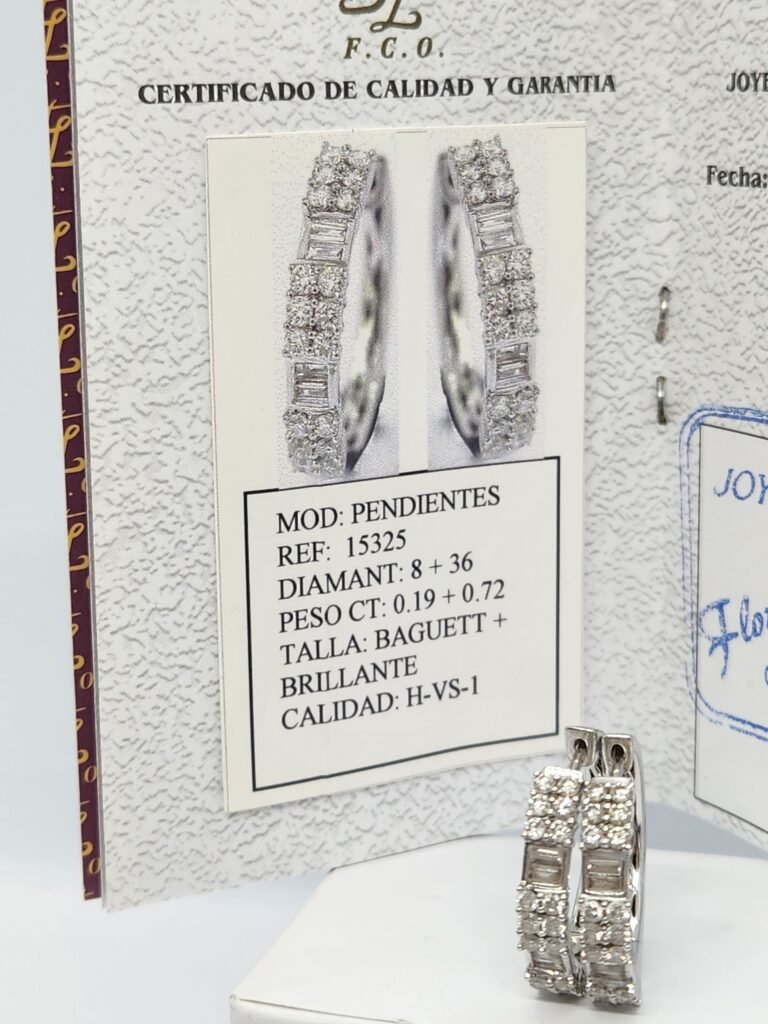 F.C.O.
CERTIFICADO DE CALIDAD Y GARANTIA
MOD: PENDIENTES
REF: 15325
DIAMANT: 8 + 36
PESO CT: 0.19 + 0.72
TALLA: BAGUETT +
BRILLANTE
CALIDAD: H-VS-1
Fecha: